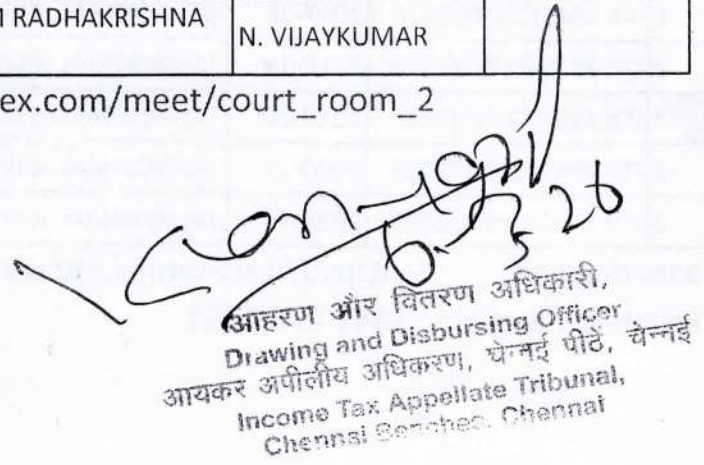 RADHAKRISHNA
N. VIJAYKUMAR
ex.com/meet/court_room_2
आहरण और वितरण अधिकारी,
Drawing and Disbursing Officer
आयकर अपीलीय अधिकरण, चेन्नई पीठें, चेन्नई
Income Tax Appellate Tribunal,
Chennai Benches, Chennai